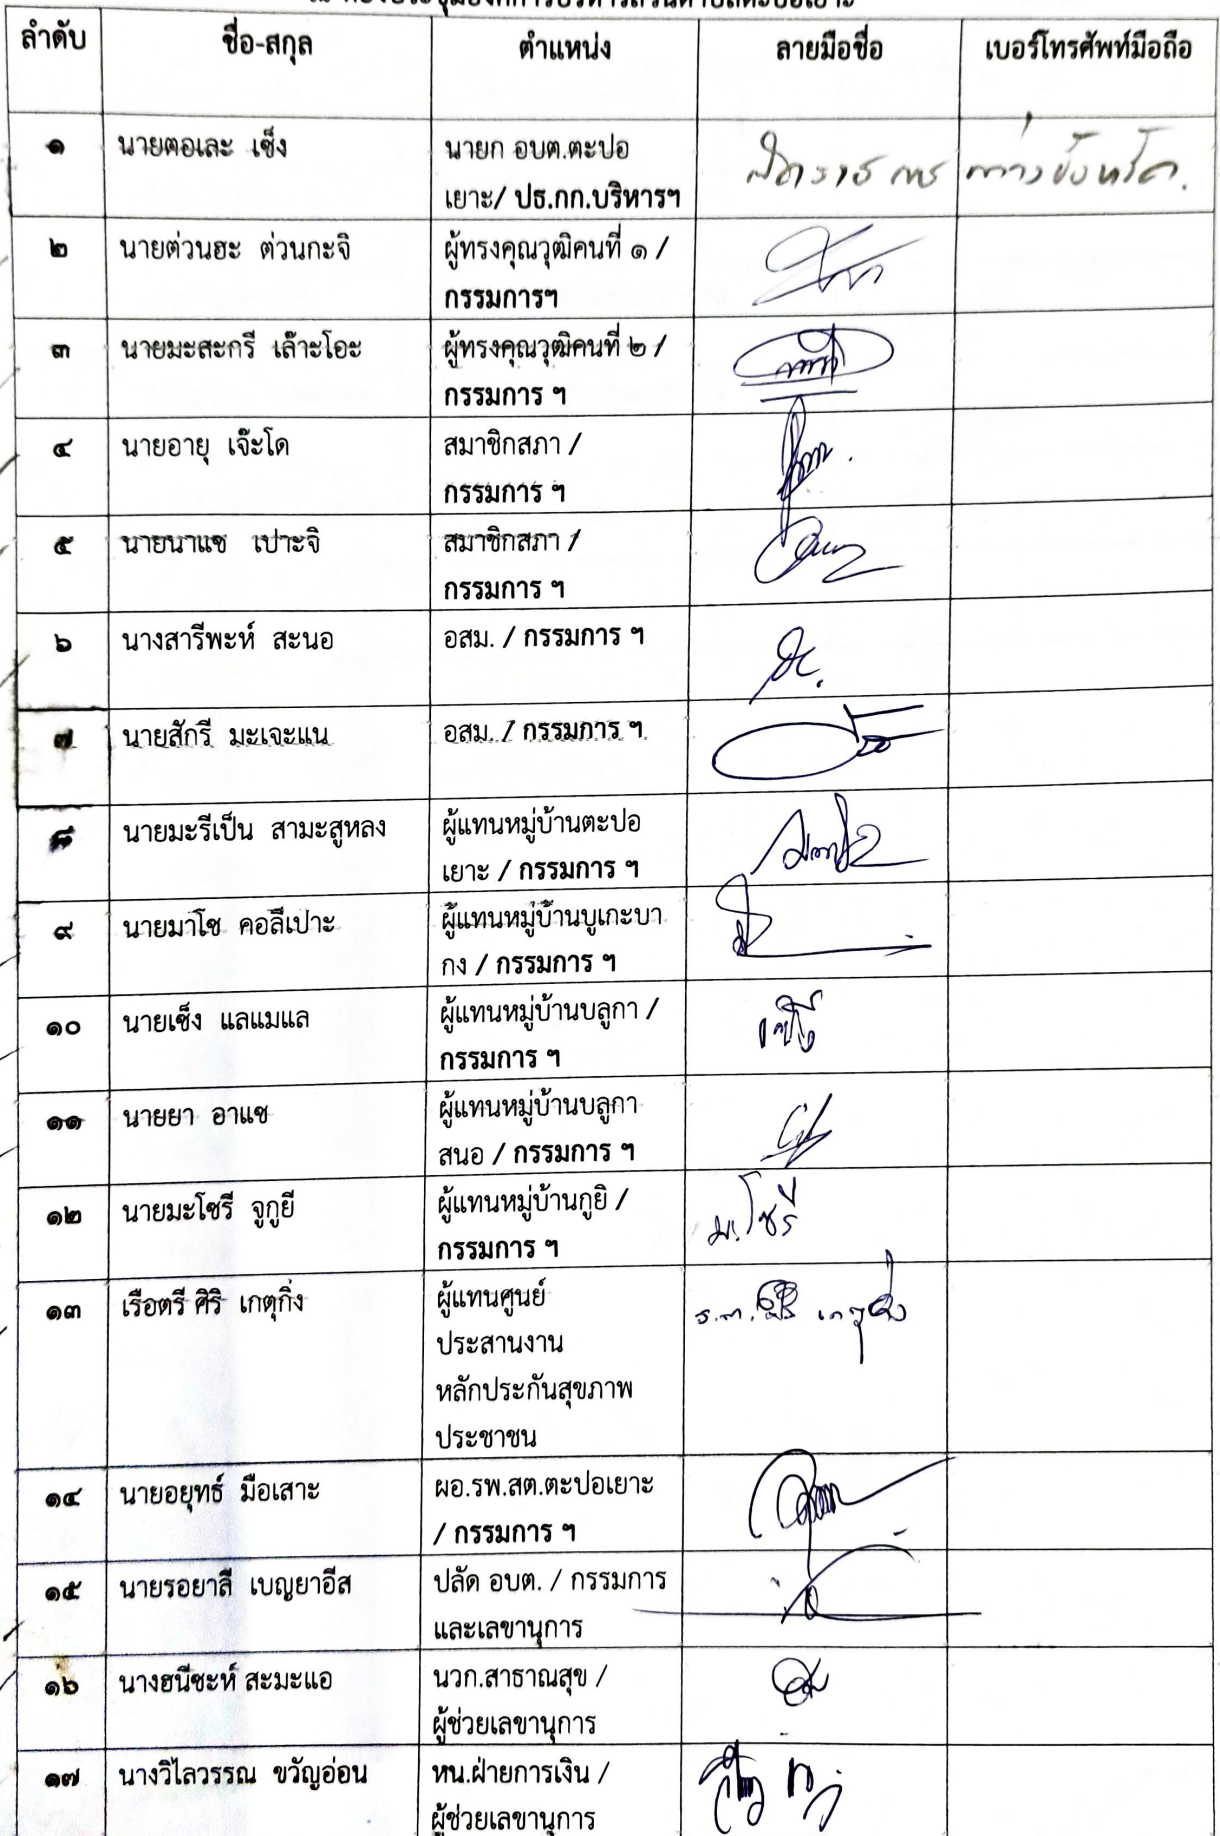 ณ ห้องประชุมองค์การบริหารส่วนตำบลตะปอเยาะ
ลำดับ ชื่อ-สกุล ตำแหน่ง ลายมือชื่อ เบอร์โทรศัพท์มือถือ
๑ นายตอเละ เซ็ง นายก อบต.ตะปอ
เยาะ/ ปธ.กก.บริหารฯ
๒ นายต่วนฮะ ต่วนกะจิ ผู้ทรงคุณวุฒิคนที่ ๑ /
กรรมการฯ
๓ นายมะสะกรี เล๊าะโอะ ผู้ทรงคุณวุฒิคนที่ ๒ /
กรรมการ ฯ
๔ นายอายุ เจ๊ะโด สมาชิกสภา /
กรรมการ ฯ
๕ นายนาแซ เปาะจิ สมาชิกสภา /
กรรมการ ฯ
๖ นางสารีพะห์ สะนอ อสม. / กรรมการ ฯ
๗ นายสักรี มะเจะแน อสม. / กรรมการ ฯ
๘ นายมะรีเป็น สามะสูหลง ผู้แทนหมู่บ้านตะปอ
เยาะ / กรรมการ ฯ
๙ นายมาโซ คอลีเปาะ ผู้แทนหมู่บ้านบูเกะบา
กง / กรรมการ ฯ
๑๐ นายเซ็ง แลแมแล ผู้แทนหมู่บ้านบลูกา /
กรรมการ ฯ
๑๑ นายยา อาแซ ผู้แทนหมู่บ้านบลูกา
สนอ / กรรมการ ฯ
๑๒ นายมะโซรี จูกูยี ผู้แทนหมู่บ้านกูยิ / ม.โซรี
กรรมการ ฯ
๑๓ เรือตรี ศิริ เกตุกิ่ง ผู้แทนศูนย์
ประสานงาน
หลักประกันสุขภาพ
ประชาชน
๑๔ นายอยุทธ์ มือเสาะ ผอ.รพ.สต.ตะปอเยาะ
/ กรรมการ ฯ
๑๕ นายรอยาลี เบญยาอีส ปลัด อบต. / กรรมการ
และเลขานุการ
๑๖ นางฮนีซะห์ สะมะแอ นวก.สาธาณสุข /
ผู้ช่วยเลขานุการ
๑๗ นางวิไลวรรณ ขวัญอ่อน หน.ฝ่ายการเงิน /
ผู้ช่วยเลขานุการ